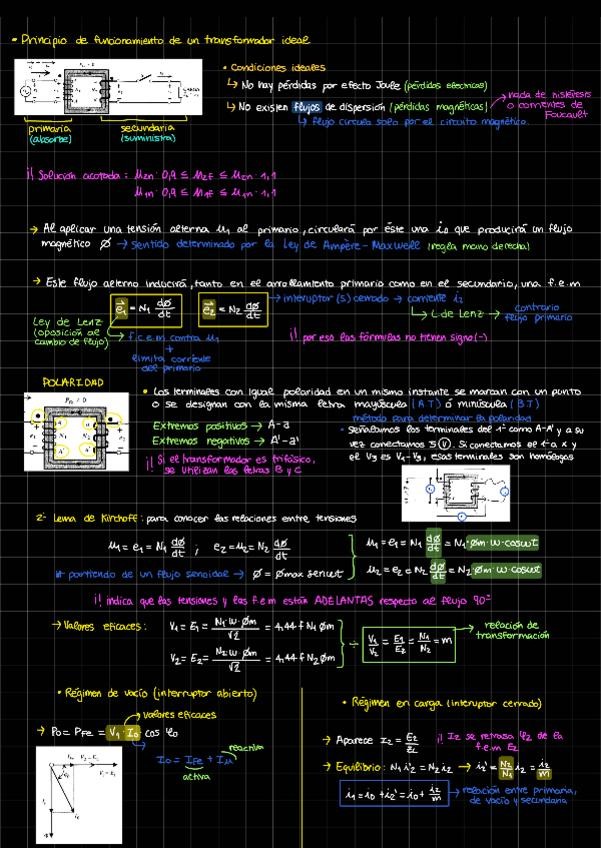 • Principio de funcionamiento de un transformador ideal
• Condiciones ideales
↳ No hay pérdidas por efecto Joule (pérdidas eléctricas)
↳ No existen flujos de dispersión (pérdidas magnéticas)
nada de histéresis
o corrientes de
Foucault
↳ flujo circula solo por el circuito magnético.
primaria
(absorbe)
secundaria
(suministra)
¡! Solución acotada: U2n·0,9 ≤ U2f ≤ U2n·1,1
U1n·0,9 ≤ U1f ≤ U1n·1,1
→ Al aplicar una tensión alterna u1 al primario, circulará por éste una i0 que producirá un flujo
magnético Ø → sentido determinado por la Ley de Ampère-Maxwell (regla mano derecha)
→ Este flujo alterno inducirá, tanto en el arrollamiento primario como en el secundario, una f.e.m
e1 = N1 dø/dt
e2 = N2 dø/dt
→ interruptor (S) cerrado → corriente i2
↳ L de Lenz → contrario
flujo primario
Ley de Lenz
(oposición al
cambio de flujo)
f.c.e.m contra u1
+
limita corriente
del primario
¡! por eso las fórmulas no tienen signo (-)
POLARIDAD
• Los terminales con igual polaridad en un mismo instante se marcan con un punto
o se designan con la misma letra mayúscula (A.T) ó minúscula (B.T)
Extremos positivos → A-a
Extremos negativos → A'-a'
¡! Si el transformador es trifásico,
se utilizan las letras B y C
método para determinar la polaridad
• Señalamos los terminales del 1º como A-A' y a su
vez conectamos 3 (V). Si conectamos el
el V3 es V1-V2, esos terminales son homólogos
2ª Lema de Kirchoff: para conocer las relaciones entre tensiones
u1 = e1 = N1 dø/dt ; e2 = u2 = N2 dø/dt
u1 = e1 = N1 dø/dt = N1·øm·w·coswt
u2 = e2 = N2 dø/dt = N2·øm·w·coswt
partiendo de un flujo senoidal → ø = ømax senwt
¡! indica que las tensiones y las f.e.m están ADELANTAS respecto al flujo 90º
→ Valores eficaces: V1 = E1 = N1·w·øm/√2 = 4,44 f N1 øm
V2 = E2 = N2·w·øm/√2 = 4,44 f N2 øm
÷ V1/V2 = E1/E2 = N1/N2 = m
relación de
transformación
• Régimen de vacío (interruptor abierto)
valores eficaces
→ P0 = PFe = V1·I0·cos φ0
I0 = IFe + Iμ
reactiva
activa
• Régimen en carga (interruptor cerrado)
→ Aparece I2 = E2/Z2 ¡! I2 se retrasa φ2 de la
f.e.m E2
→ Equilibrio: N1 i2' = N2 i2 → i2' = N2/N1 i2 = i2/m
i1 = i0 + i2' = i0 + i2/m → relación entre primaria,
de vacío y secundaria